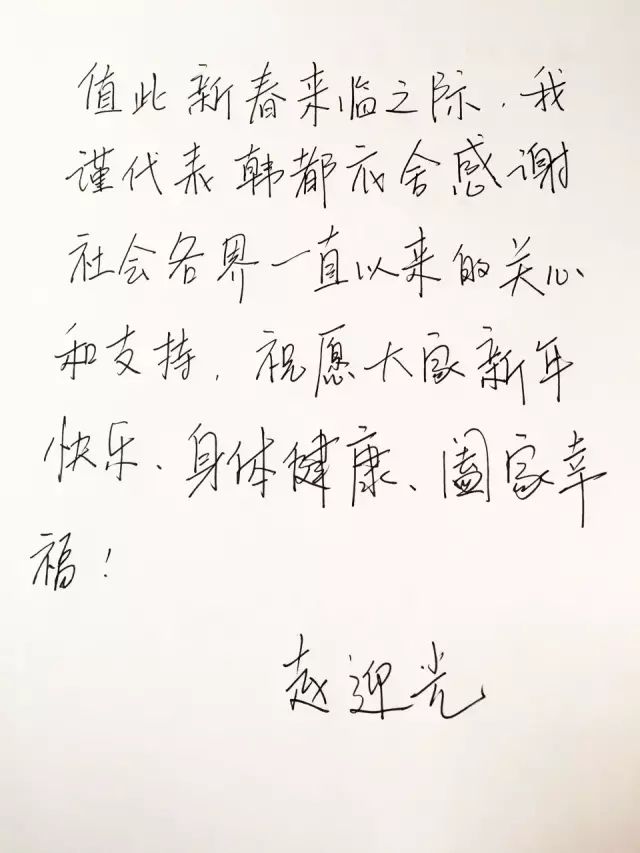 值此新春来临之际，我
谨代表韩都衣舍感谢
社会各界一直以来的关心
和支持，祝愿大家新年
快乐、身体健康、阖家幸
福！
赵迎光